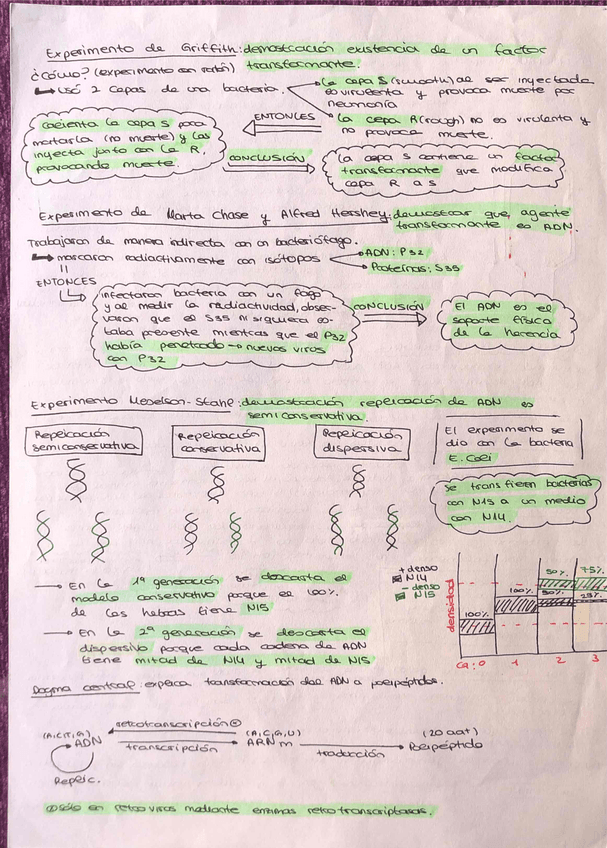 Experimento de Griffith: demostración existencia de un factor
¿Cómo? (experimento con ratón) transformante.
↳ Usó 2 cepas de una bacteria.
La cepa S (smooth) al ser injectada
es virulenta y provoca muerte por
neumonía
la cepa R (rough) no es virulenta y
no provoca muerte.
ENTONCES
calienta la cepa S para
matarla (no muerte) y las
injecta junto con la R,
provocando muerte.
CONCLUSIÓN
La cepa S contiene un factor
transformante que modifica
cepa R a S
Experimento de Marta Chase y Alfred Hershey: demostrar que agente
transformante es ADN.
Trabajaron de manera indirecta con un bacteriófago.
↳ marcaron radiactivamente con isótopos
ADN: P32
Proteínas: S35
ENTONCES
infectaron bacteria con un fago
y al medir la radiactividad, obser-
varon que el S35 ni siquiera es-
taba presente mientras que el P32
había penetrado → nuevos virus
con P32
CONCLUSIÓN
El ADN es el
soporte física
de la herencia
Experimento Meselson-Stahl: demostración replicación de ADN es
semiconservativa.
Replicación
semiconservativa
Replicación
conservativa
Replicación
dispersiva
El experimento se
dio con la bacteria
E. Coli
Se transfieren bacterias
con N15 a un medio
con N14.
→ En la 1ª generación se descarta el
modelo conservativo porque el 100%
de las hebras tiene N15
→ En la 2ª generación se descarta el
dispersivo porque cada cadena de ADN
tiene mitad de N14 y mitad de N15
+ denso
N14
- denso
N15
densidad
100%
100%
50%
50%
75%
25%
Ca: 0 1 2 3
Dogma central: explica transformación del ADN a polipéptidos.
retrotranscripción ①
(A,C,T,G) ADN
transcripción
(A,C,G,U) ARNm
traducción
(20 aat) Polipéptido
Replic.
① Sólo en retrovirus mediante enzimas retrotranscriptasas.